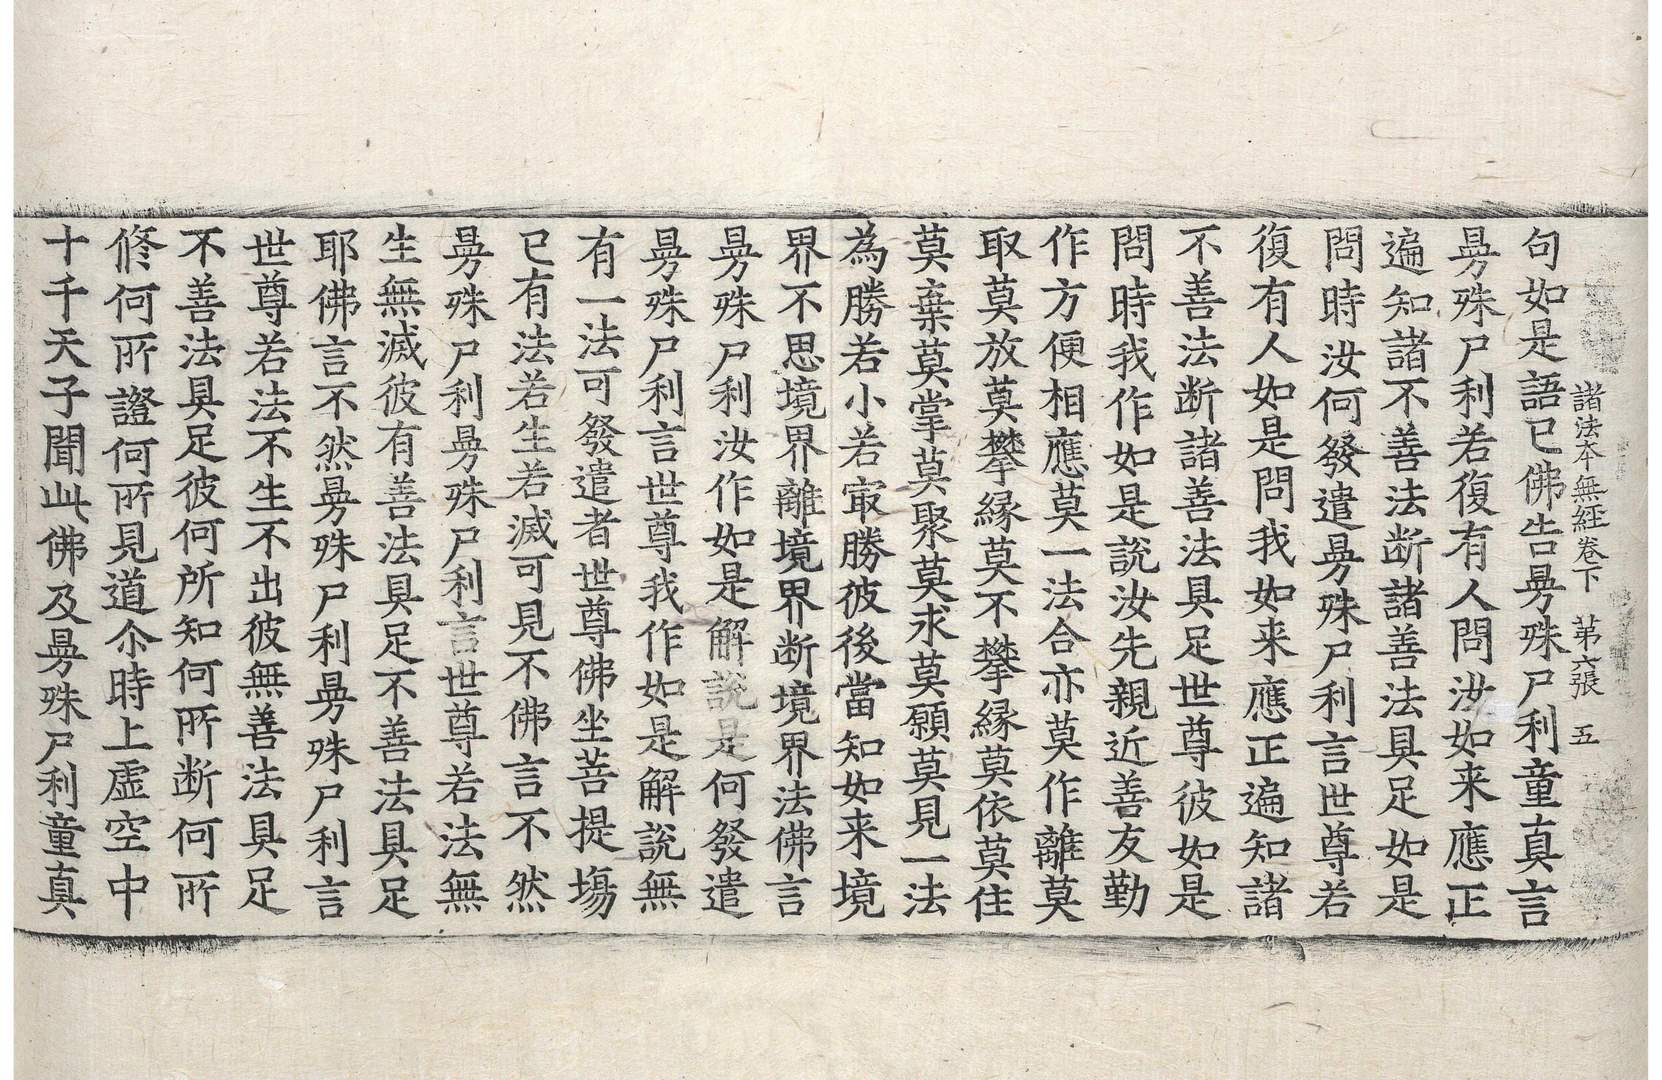 諸法本無經卷下　第六張　五
句如是語已佛告㬅殊尸利童真言
㬅殊尸利若復有人問汝如来應正
遍知諸不善法断諸善法具足如是
問時汝何發遣㬅殊尸利言世尊若
復有人如是問我如来應正遍知諸
不善法断諸善法具足世尊彼如是
問時我作如是說汝先親近善友勤
作方便相應莫一法合亦莫作離莫
取莫放莫攀縁莫不攀縁莫依莫住
莫棄莫掌莫聚莫求莫願莫見一法
為勝若小若㝡勝彼後當知如来境
界不思境界離境界断境界法佛言
㬅殊尸利汝作如是解說是何發遣
㬅殊尸利言世尊我作如是解說無
有一法可發遣者世尊佛坐菩提場
已有法若生若滅可見不佛言不然
㬅殊尸利㬅殊尸利言世尊若法無
生無滅彼有善法具足不善法具足
耶佛言不然㬅殊尸利㬅殊尸利言
世尊若法不生不出彼無善法具足
不善法具足彼何所知何所断何所
修何所證何所見道尒時上虛空中
十千天子聞此佛及㬅殊尸利童真